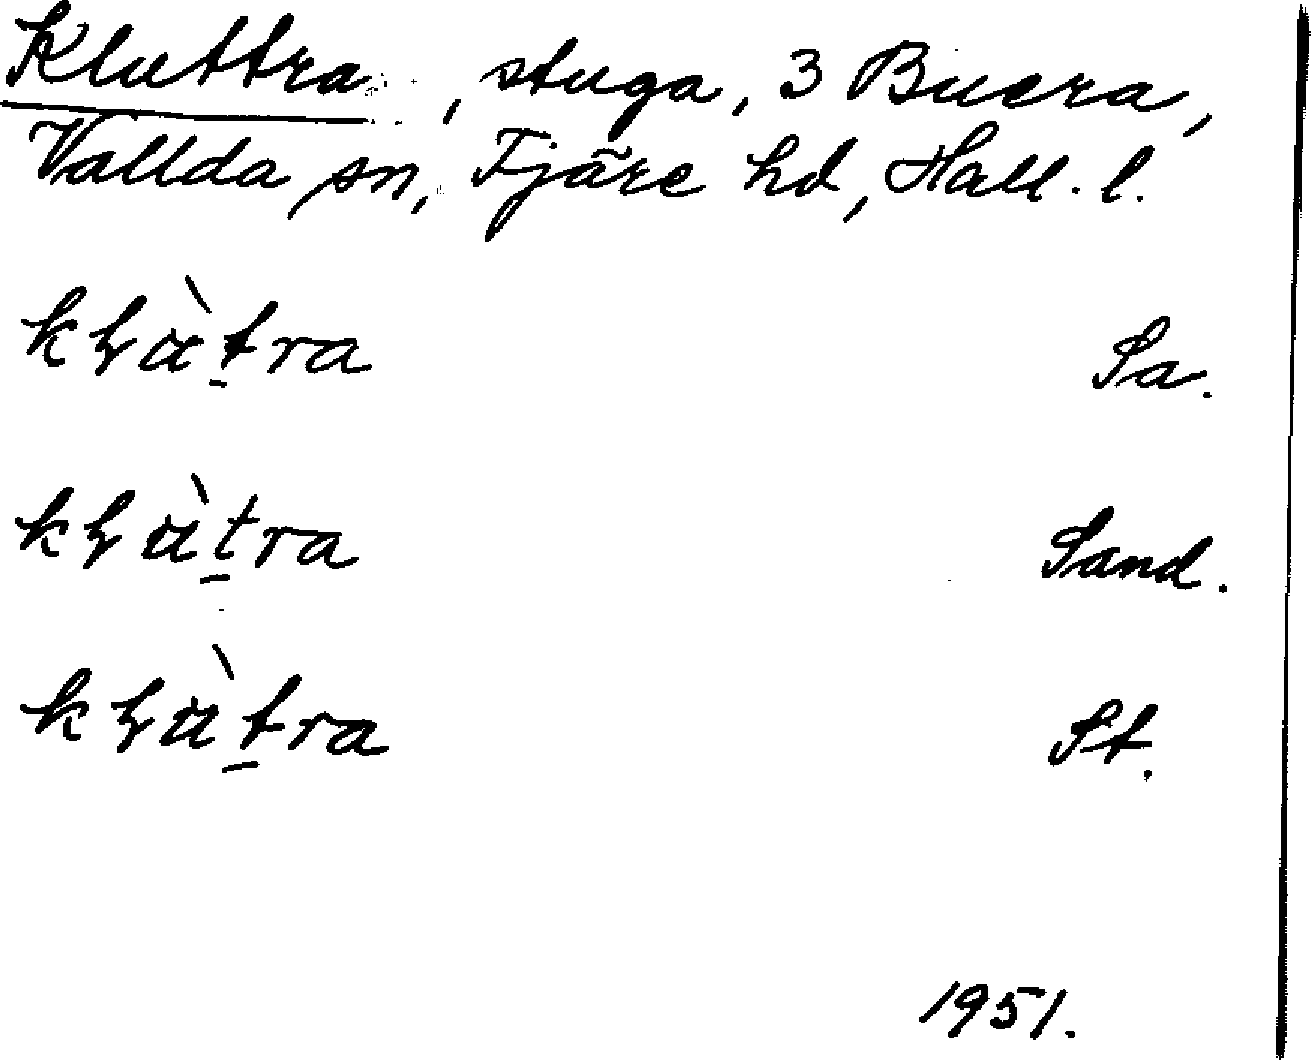 Kluttra, stuga, 3 Buera,
Vallda sn, Fjäre hd, Hall. l.
kɽu̇̀t̠ra Sa.
kɽu̇̀t̠ra Sand.
kɽu̇̀t̠ra St.
1951.